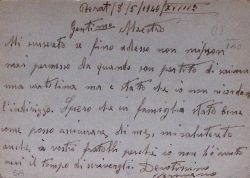 Berat / 8/5/1940/XVIII
Gent/mo Maestro
Mi scuserete se fino adesso non
mai permesso da quando son partito di
una cartolina ma è stato che io non ricordavo
l'indirizzo. Spero che in famiglia state bene
come posso assicurare di me, mi salutate
anche a vostri fratelli perchè io non ho avuto
mai il tempo di scrivergli. Devotissimo